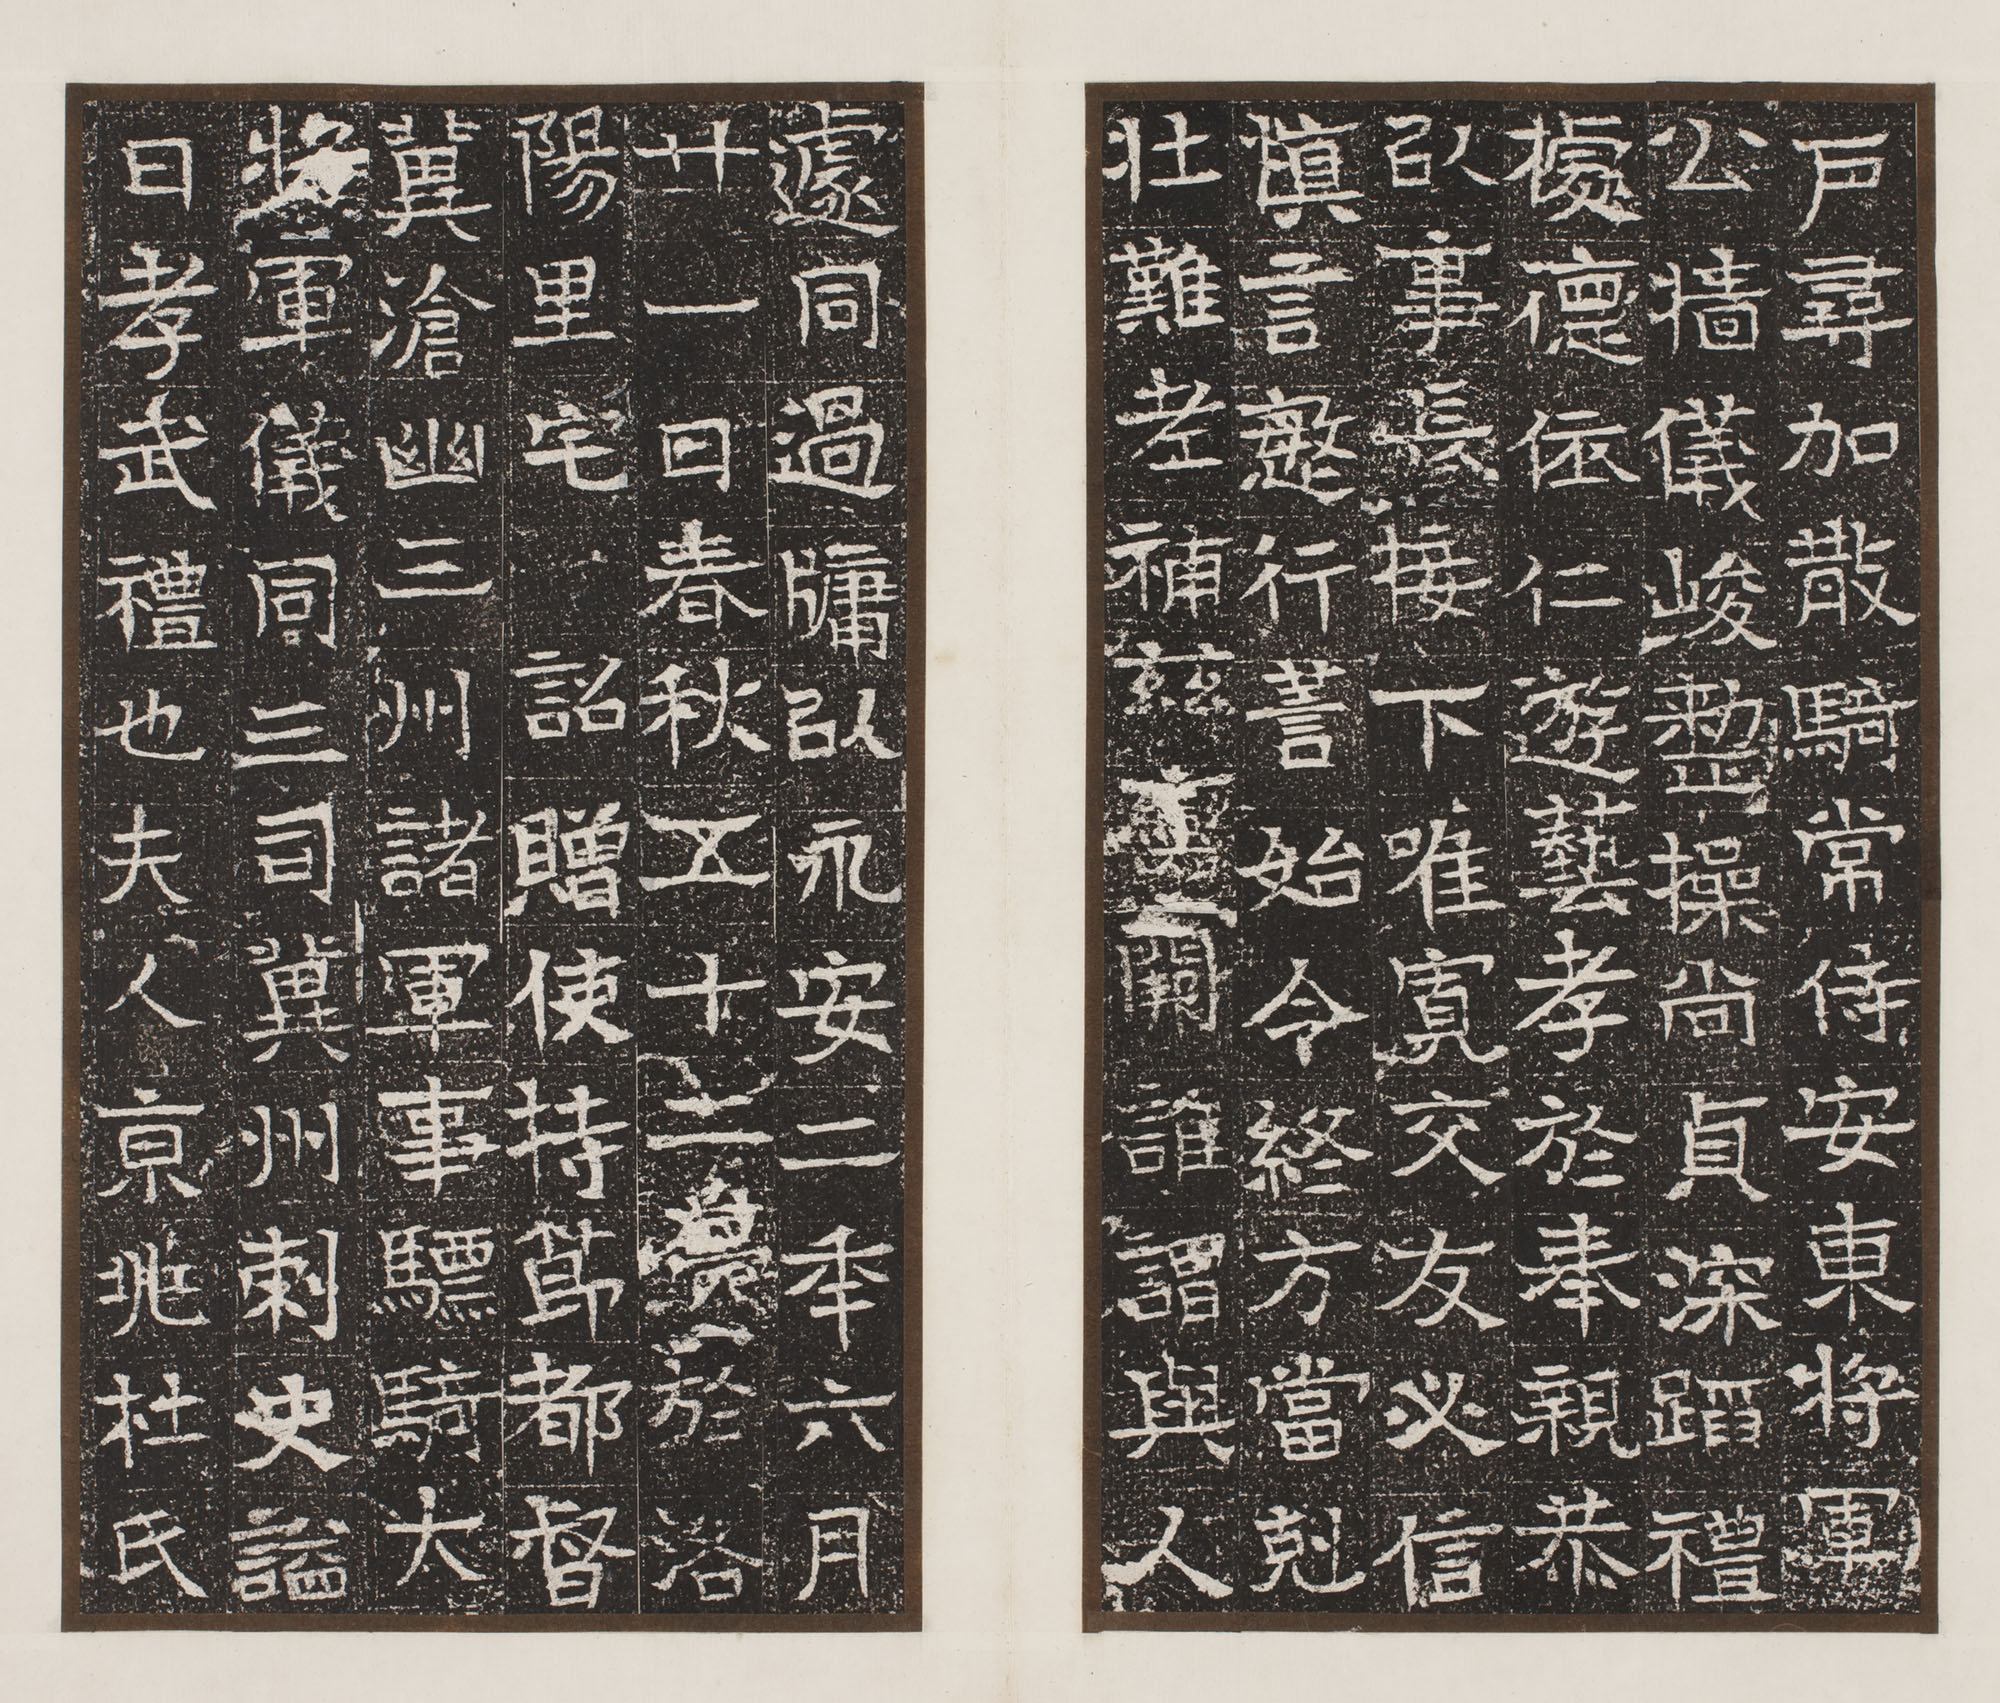 戶尋加散騎常侍安東將軍
公牆儀峻整操尚貞深蹈禮
據德依仁遊藝孝於奉親恭
以事長接下唯寬交友必信
慎言慜行善始令終方當剋
壯難老補茲袞闕誰謂與人
遽同過牖以永安二年六月
廿一日春秋五十薨於洛
陽里宅 詔贈使持節都督
冀滄幽三州諸軍事驃騎大
將軍儀同三司冀州刺史謚
曰孝武禮也夫人京兆杜氏